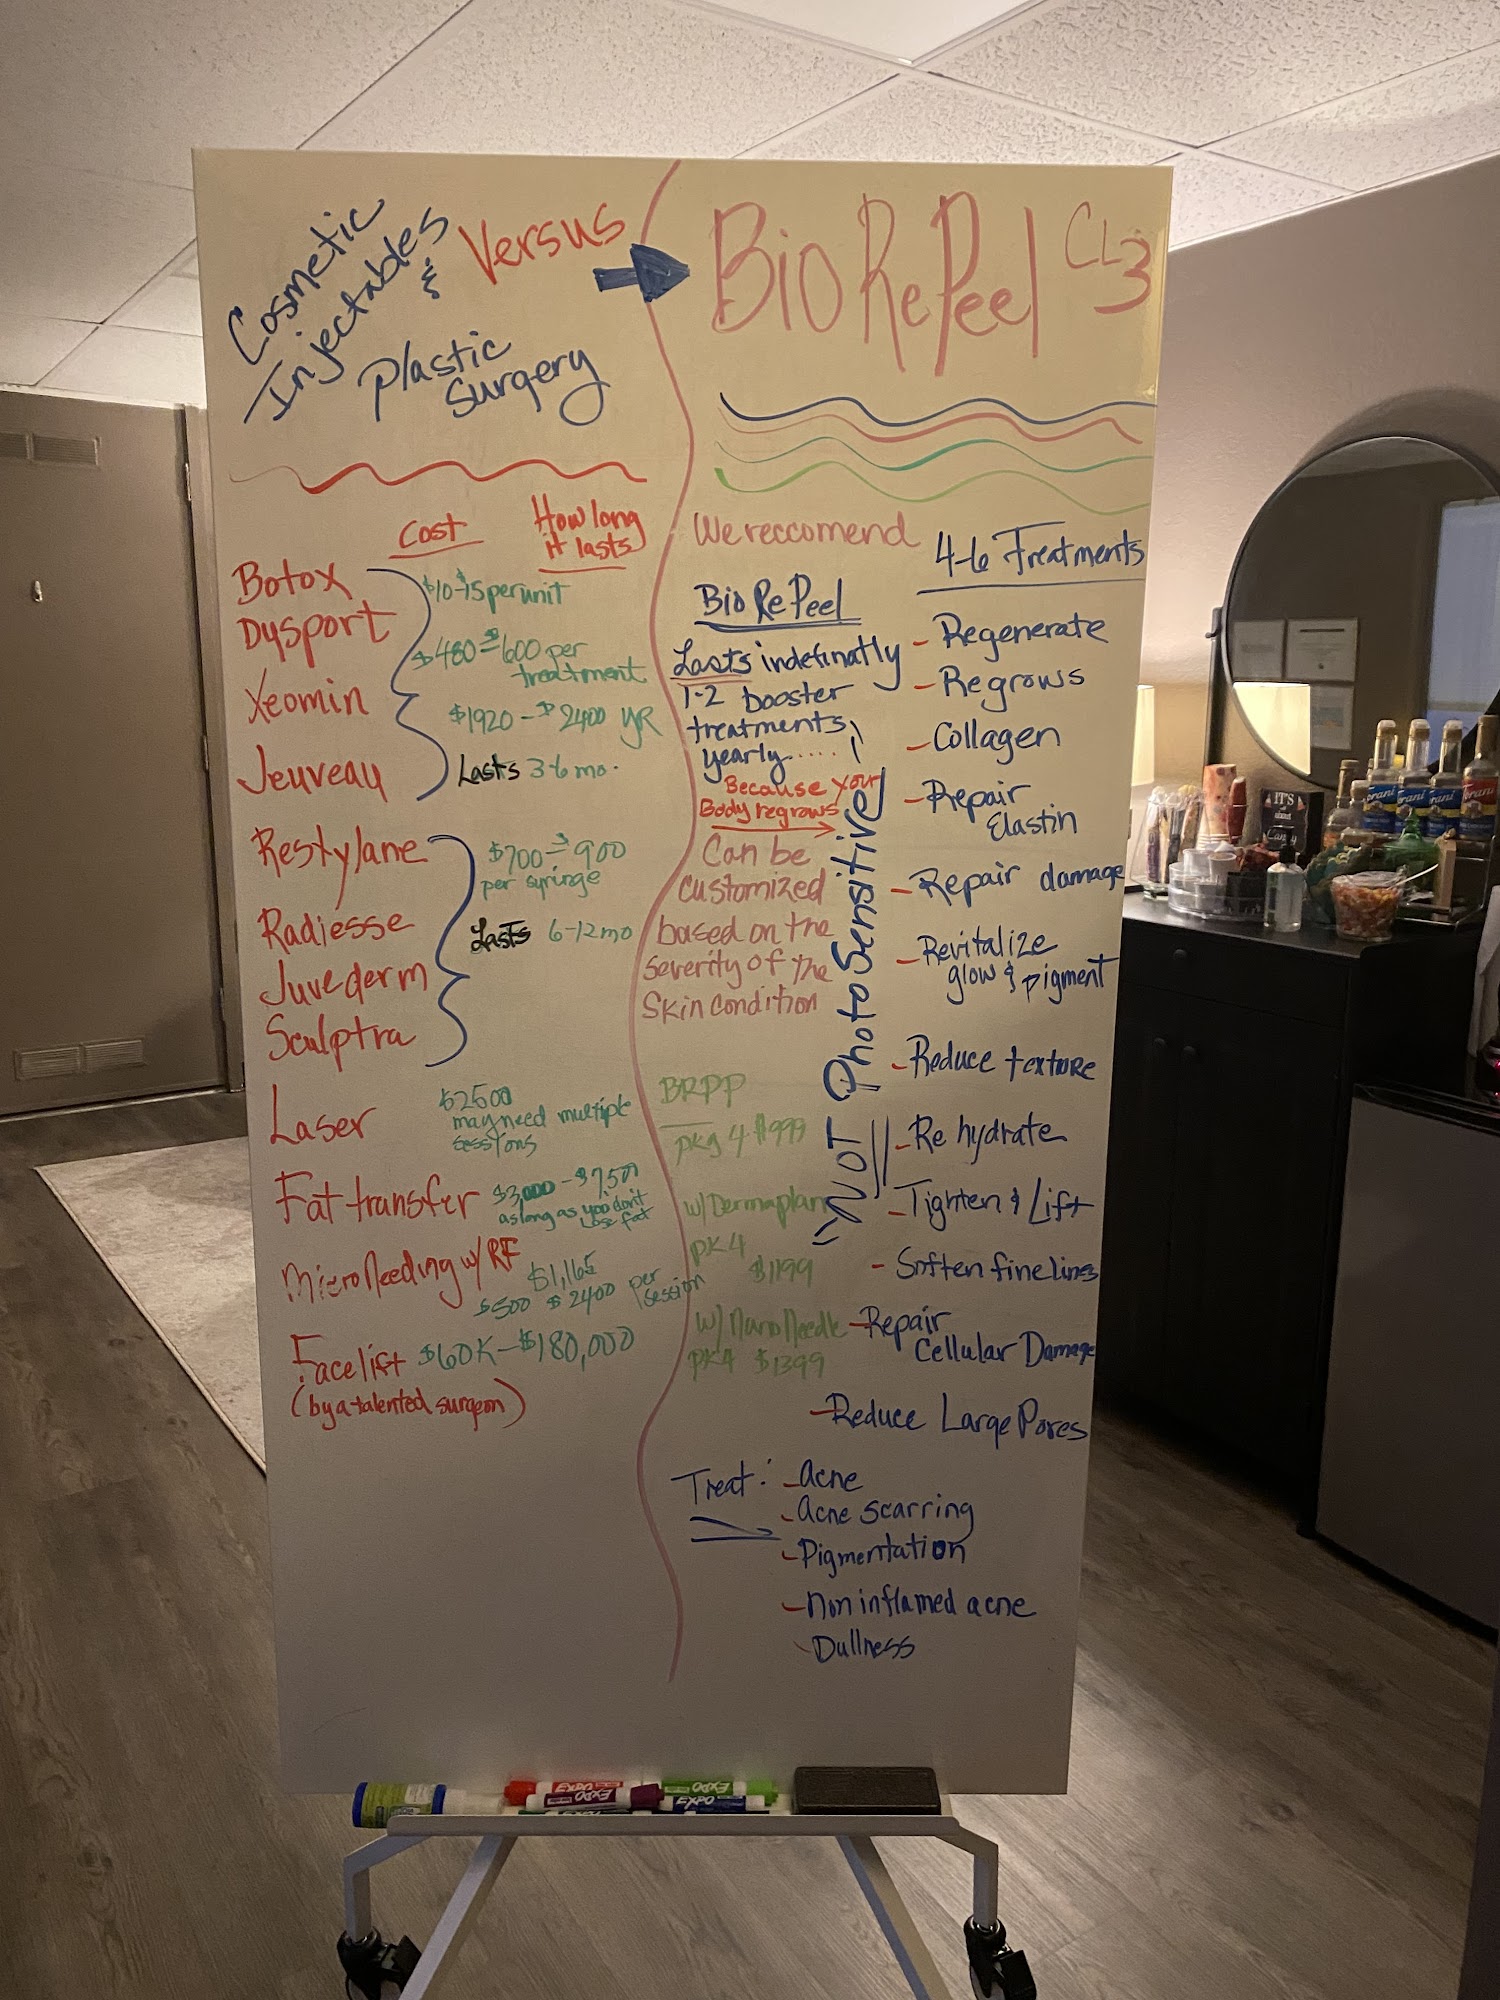 Cosmetic
Injectables
&
Plastic
Surgery
Versus
BioRePeel CL3
Cost
How long
it lasts
Botox
Dysport
Xeomin
Jeuveau
$10-$15 per unit
$480-$600 per
treatment
$1920-$2400 YR
Lasts 3-6 mo.
Restylane
Radiesse
Juvederm
Sculptra
$700-$900
per syringe
Lasts 6-12mo
Laser
$2500
may need multiple
sessions
Fat transfer
$3,000-$7500
as long as you don't
lose fat
MicroNeeding w/ RF
$1,165
$500 $2400 per
session
Facelift $60K-$180,000
(by a talented surgeon)
We reccomend
4-6 Treatments
BioRePeel
Lasts indefinatly
1-2 booster
treatments
yearly.....
Because your
Body regrows
Can be
customized
based on the
severity of the
skin condition
BRPP
pkg 4 $999
w/Dermaplan
pk4
$1199
w/NanoNeedle
pk4 $1399
NOT PhotoSensitive
- Regenerate
- Regrows
- Collagen
- Repair
Elastin
- Repair damage
- Revitalize
glow & pigment
- Reduce texture
- Re hydrate
- Tighten & Lift
- Soften fine lines
- Repair
Cellular Damage
- Reduce Large Pores
Treat:
- Acne
- Acne scarring
- Pigmentation
- Non inflamed acne
- Dullness
EXPO
EXPO
EXPO
EXPO
IT'S
all about
Torani